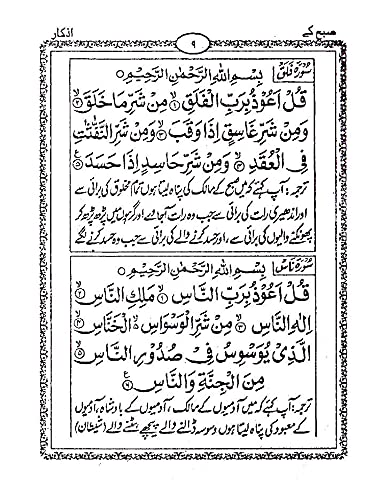 صبح کے
۹
اذکار
سورۂ فلق
بِسْمِ اللهِ الرَّحْمٰنِ الرَّحِيْمِ
قُلْ اَعُوْذُ بِرَبِّ الْفَلَقِ ۱ مِنْ شَرِّ مَا خَلَقَ ۲
وَمِنْ شَرِّ غَاسِقٍ اِذَا وَقَبَ ۳ وَمِنْ شَرِّ النَّفّٰثٰتِ
فِى الْعُقَدِ ۴ وَمِنْ شَرِّ حَاسِدٍ اِذَا حَسَدَ ۵
ترجمہ: آپ کہئے کہ میں صبح کے مالک کی پناہ لیتا ہوں تمام مخلوق کی برائی سے
اور اندھیری رات کی برائی سے جب وہ رات آجائے اور گرہوں میں پڑھ پڑھ کر
پھونکنے والیوں کی برائی سے، اور حسد کرنے والے کی برائی سے جب وہ حسد کرنے لگے
سورۂ ناس
بِسْمِ اللهِ الرَّحْمٰنِ الرَّحِيْمِ
قُلْ اَعُوْذُ بِرَبِّ النَّاسِ ۱ مَلِكِ النَّاسِ ۲
اِلٰهِ النَّاسِ ۳ مِنْ شَرِّ الْوَسْوَاسِ الْخَنَّاسِ ۴
الَّذِىْ يُوَسْوِسُ فِىْ صُدُوْرِ النَّاسِ ۵
مِنَ الْجِنَّةِ وَالنَّاسِ ۶
ترجمہ: آپ کہئے کہ میں آدمیوں کے مالک، آدمیوں کے بادشاہ، آدمیوں
کے معبود کی پناہ لیتا ہوں وسوسہ ڈالنے والے پیچھے ہٹنے والے (شیطان)